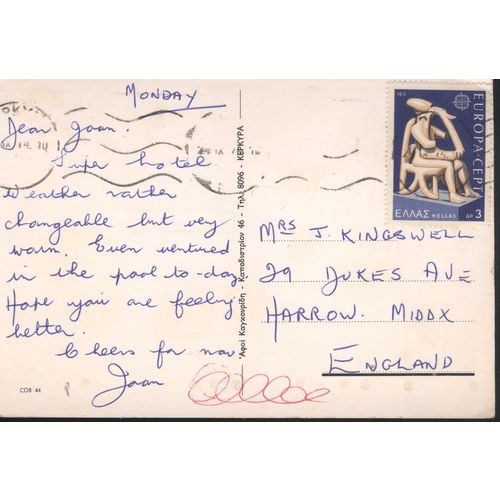 MONDAY
Dear Joan.
Super hotel
Weather rather
changeable but very
warm. Even ventured
in the pool to-day
Hope you are feeling
better.
Cheers for now
Joan
COR 44
Άφοί Καγκουρίδη - Καποδιστρίου 46 - Τηλ. 8096 - ΚΕΡΚΥΡΑ
EUROPA·CEPT
ΕΛΛΑΣ HELLAS ΔΡ 3
MRS J. KINGSWELL
29 DUKES AVE.
HARROW. MIDDX
ENGLAND